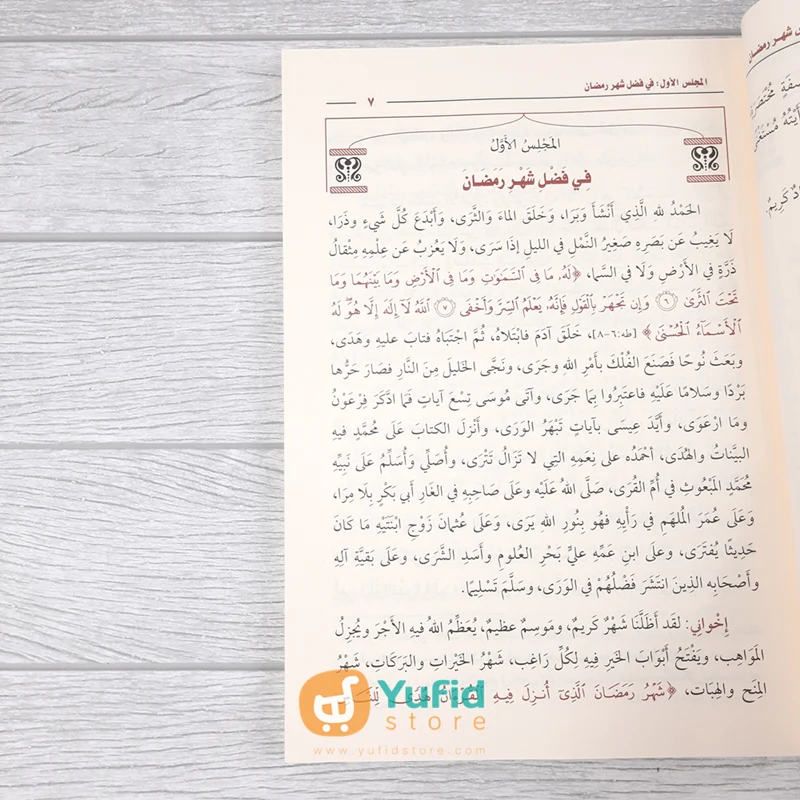 المجلس الأول: في فضل شهر رمضان
٧
المَجْلِسُ الأَوَّلُ
فِي فَضْلِ شَهْرِ رَمَضانَ
الحَمْدُ للهِ الَّذِي أَنْشَأَ وَبَرَا، وَخَلَقَ الماءَ وَالثَّرَى، وَأَبْدَعَ كُلَّ شَيءٍ وذَرَا،
لَا يَغِيبُ عَن بَصَرِهِ صَغِيرُ النَّمْلِ فِي الليلِ إذَا سَرَى، وَلَا يَعْزُبُ عَن عِلْمِهِ مِثْقالُ
ذَرَّةٍ فِي الأَرْضِ وَلَا في السَّما، ﴿لَهُۥ مَا فِى ٱلسَّمَٰوَٰتِ وَمَا فِى ٱلْأَرْضِ وَمَا بَيْنَهُمَا وَمَا
تَحْتَ ٱلثَّرَىٰ ۝٦ وَإِن تَجْهَرْ بِٱلْقَوْلِ فَإِنَّهُۥ يَعْلَمُ ٱلسِّرَّ وَأَخْفَى ۝٧ ٱللَّهُ لَآ إِلَٰهَ إِلَّا هُوَ ۖ لَهُ
ٱلْأَسْمَآءُ ٱلْحُسْنَىٰ﴾ [طه:٦-٨]، خَلَقَ آدَمَ فابْتَلاهُ، ثُمَّ اجْتَبَاهُ فتابَ عليهِ وهَدَى،
وبَعَثَ نُوحًا فَصَنَعَ الفُلْكَ بأَمْرِ اللهِ وجَرَى، ونَجَّى الخَليلَ مِنَ النَّارِ فصَارَ حَرُّها
بَرْدًا وسَلامًا عَلَيْهِ فاعتَبِرُوا بِمَا جَرَى، وآتَى مُوسَى تِسْعَ آياتٍ فَمَا ادَّكَرَ فِرْعَوْنُ
ومَا ارْعَوَى، وأَيَّدَ عِيسَى بآياتٍ تَبْهَرُ الوَرَى، وأَنْزَلَ الكتابَ عَلَى مُحمَّدٍ فيهِ
البيِّناتُ والهُدَى، أَحْمَدُه على نِعَمِهِ التي لا تَزَالُ تَتْرَى، وأُصَلِّي وأُسَلِّمُ عَلَى نَبِيِّهِ
مُحَمَّدٍ المَبْعُوثِ في أُمِّ القُرَى، صَلَّى اللهُ عَلَيْهِ وعَلَى صَاحِبِهِ فِي الغَارِ أَبِي بَكْرٍ بِلَا مِرَا،
وَعَلَى عُمَرَ المُلهَمِ في رَأْيِهِ فهُو بِنُورِ اللهِ يَرَى، وَعَلَى عُثمانَ زَوْجِ ابْنَتَيْهِ مَا كَانَ
حَدِيثًا يُفتَرَى، وعلَى ابنِ عَمِّهِ عليٍّ بَحْرِ العُلومِ وأَسَدِ الشَّرَى، وعلَى بَقيَّةِ آلِهِ
وأَصْحَابِه الذِينَ انتَشَرَ فَضْلُهُمْ في الوَرَى، وسَلَّمَ تَسْلِيمًا.
إِخْواني: لقَد أَظَلَّنَا شَهْرٌ كَريمٌ، ومَوسِمٌ عظيمٌ، يُعَظِّمُ اللهُ فيهِ الأَجْرَ ويُجْزِلُ
المَوَاهِبَ، ويَفْتَحُ أَبْوَابَ الخَيرِ فِيهِ لِكُلِّ رَاغِبٍ، شَهْرُ الخَيْراتِ والبَرَكَاتِ، شَهْرُ
المِنَحِ والهِبَات، ﴿شَهْرُ رَمَضَانَ ٱلَّذِىٓ أُنزِلَ فِيهِ ٱلْقُرْءَانُ هُدًى لِّلنَّاسِ
شهر رمضان
مُخْتَصَرَةٍ
كَرِيمٌ.
Yufid
store
www.yufidstore.com